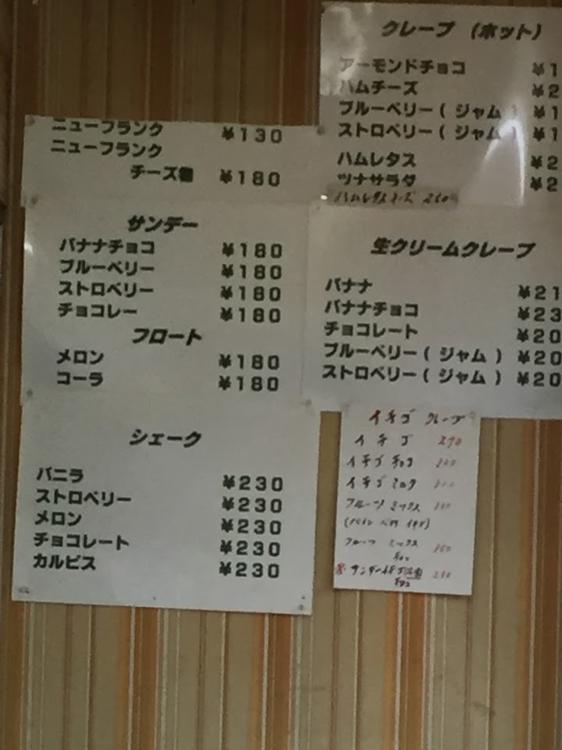 ニューフランク ¥130
ニューフランク
チーズ巻 ¥180
サンデー
バナナチョコ ¥180
ブルーベリー ¥180
ストロベリー ¥180
チョコレー ¥180
フロート
メロン ¥180
コーラ ¥180
シェーク
バニラ ¥230
ストロベリー ¥230
メロン ¥230
チョコレート ¥230
カルピス ¥230
クレープ (ホット)
アーモンドチョコ ¥1
ハムチーズ ¥2
ブルーベリー(ジャム) ¥1
ストロベリー(ジャム) ¥1
ハムレタス ¥2
ツナサラダ ¥2
ハムレタスチーズ 260
生クリームクレープ
バナナ ¥21
バナナチョコ ¥23
チョコレート ¥20
ブルーベリー(ジャム) ¥20
ストロベリー(ジャム) ¥20
イチゴ クレープ
イチゴ 290
イチゴ チョコ
イチゴ ミルク
フルーツ ミックス
フルーツ ミックス
チョコ